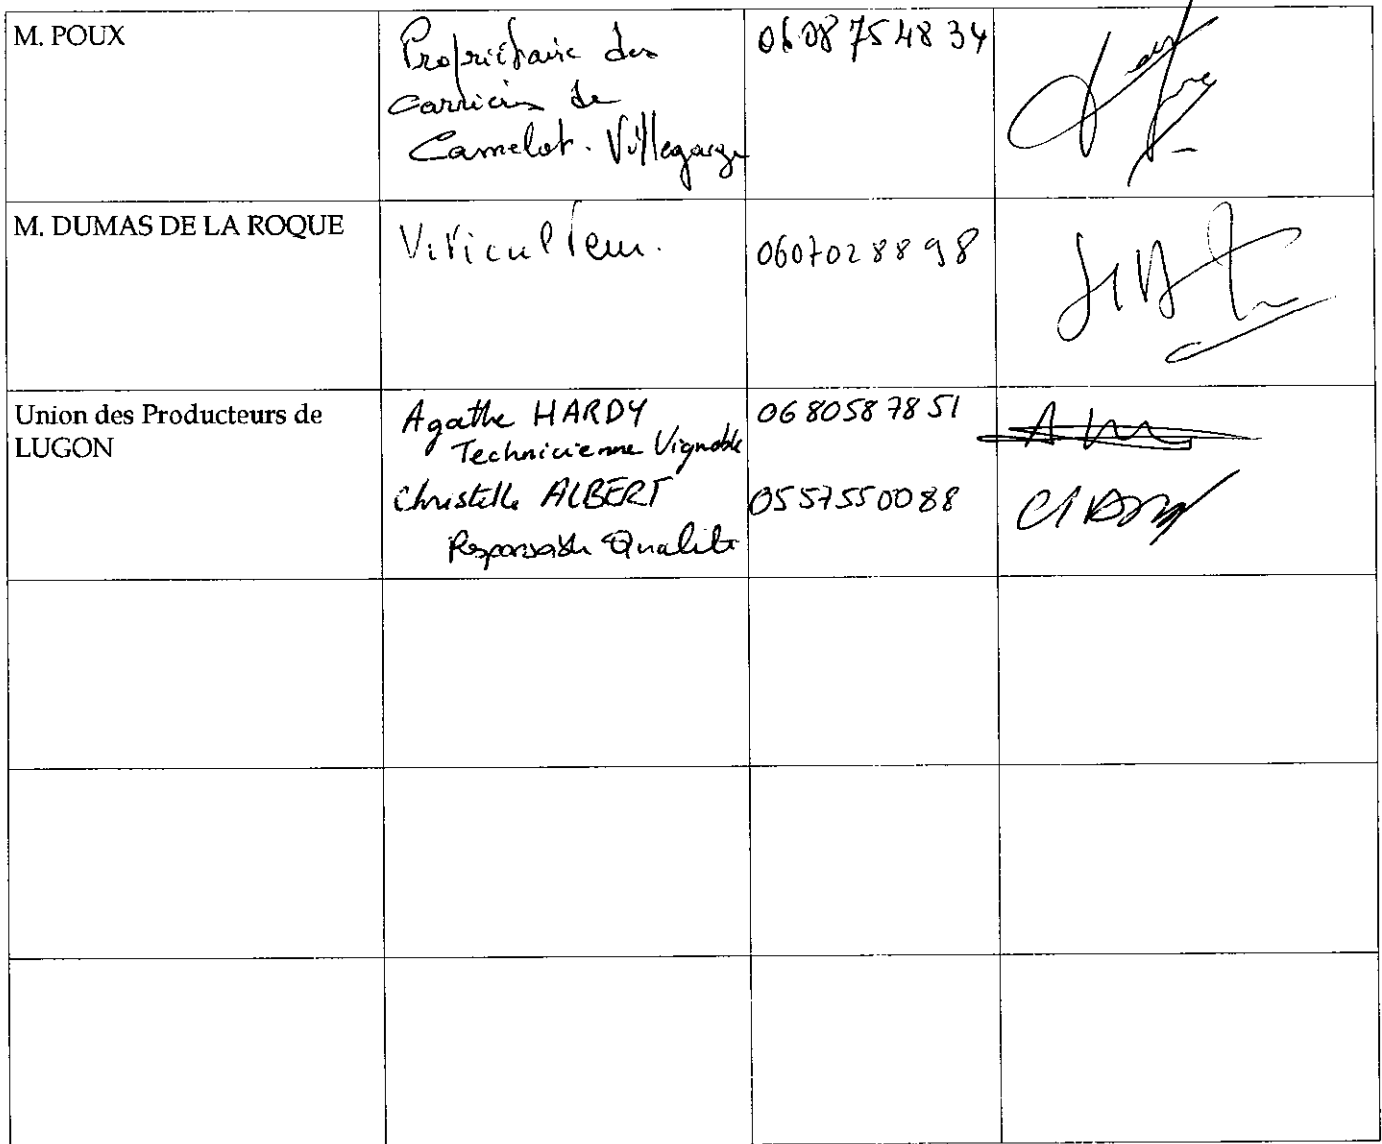 M. POUX
Propriétaire des
carrières de
Camelot. Villegouge
06 08 75 48 34
M. DUMAS DE LA ROQUE
Viticulteur.
0607028898
Union des Producteurs de
LUGON
Agathe HARDY
Technicienne Vignoble
Christelle ALBERT
Responsable Qualité
0680587851
0557550088